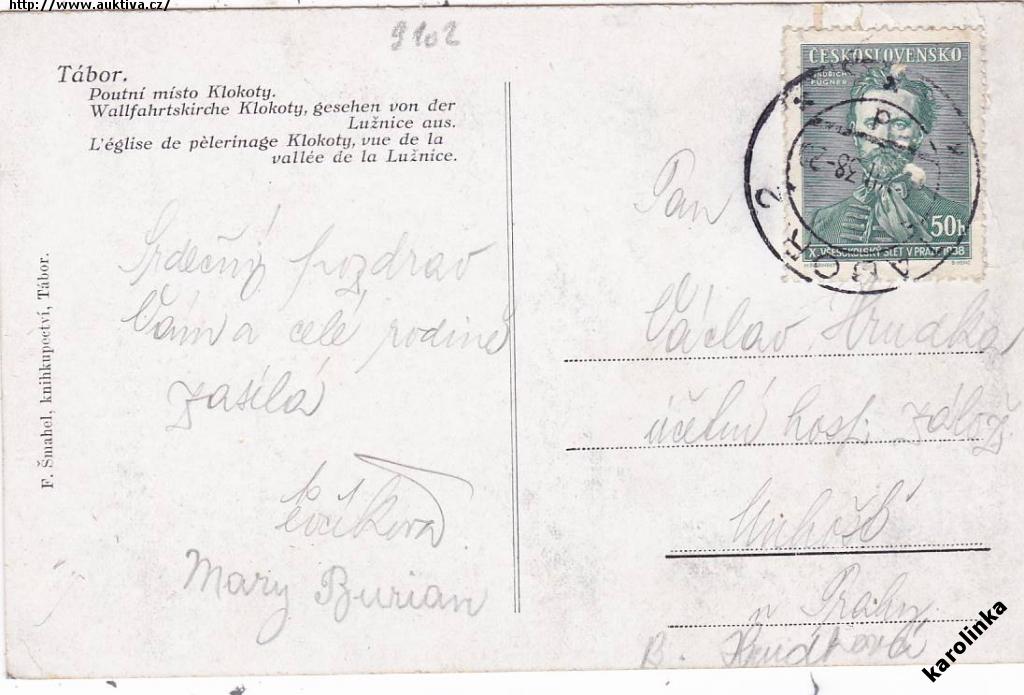 http://www.auktiva.cz/
9102
Tábor.
Poutní místo Klokoty.
Wallfahrtskirche Klokoty, gesehen von der
Lužnice aus.
L'église de pèlerinage Klokoty, vue de la
vallée de la Lužnice.
F. Šmahel, knihkupectví, Tábor.
Srdečný pozdrav
Vám a celé rodině
zasílá
Mary Burian
ČESKOSLOVENSKO
JINDŘICH
FÜGNER
50h
X. VŠESOKOLSKÝ SLET V PRAZE 1938
TÁBOR 2
Pan
Václav Hrudka
účetní hosp. zálož.
u Prahy
B. Hrudková
karolinka